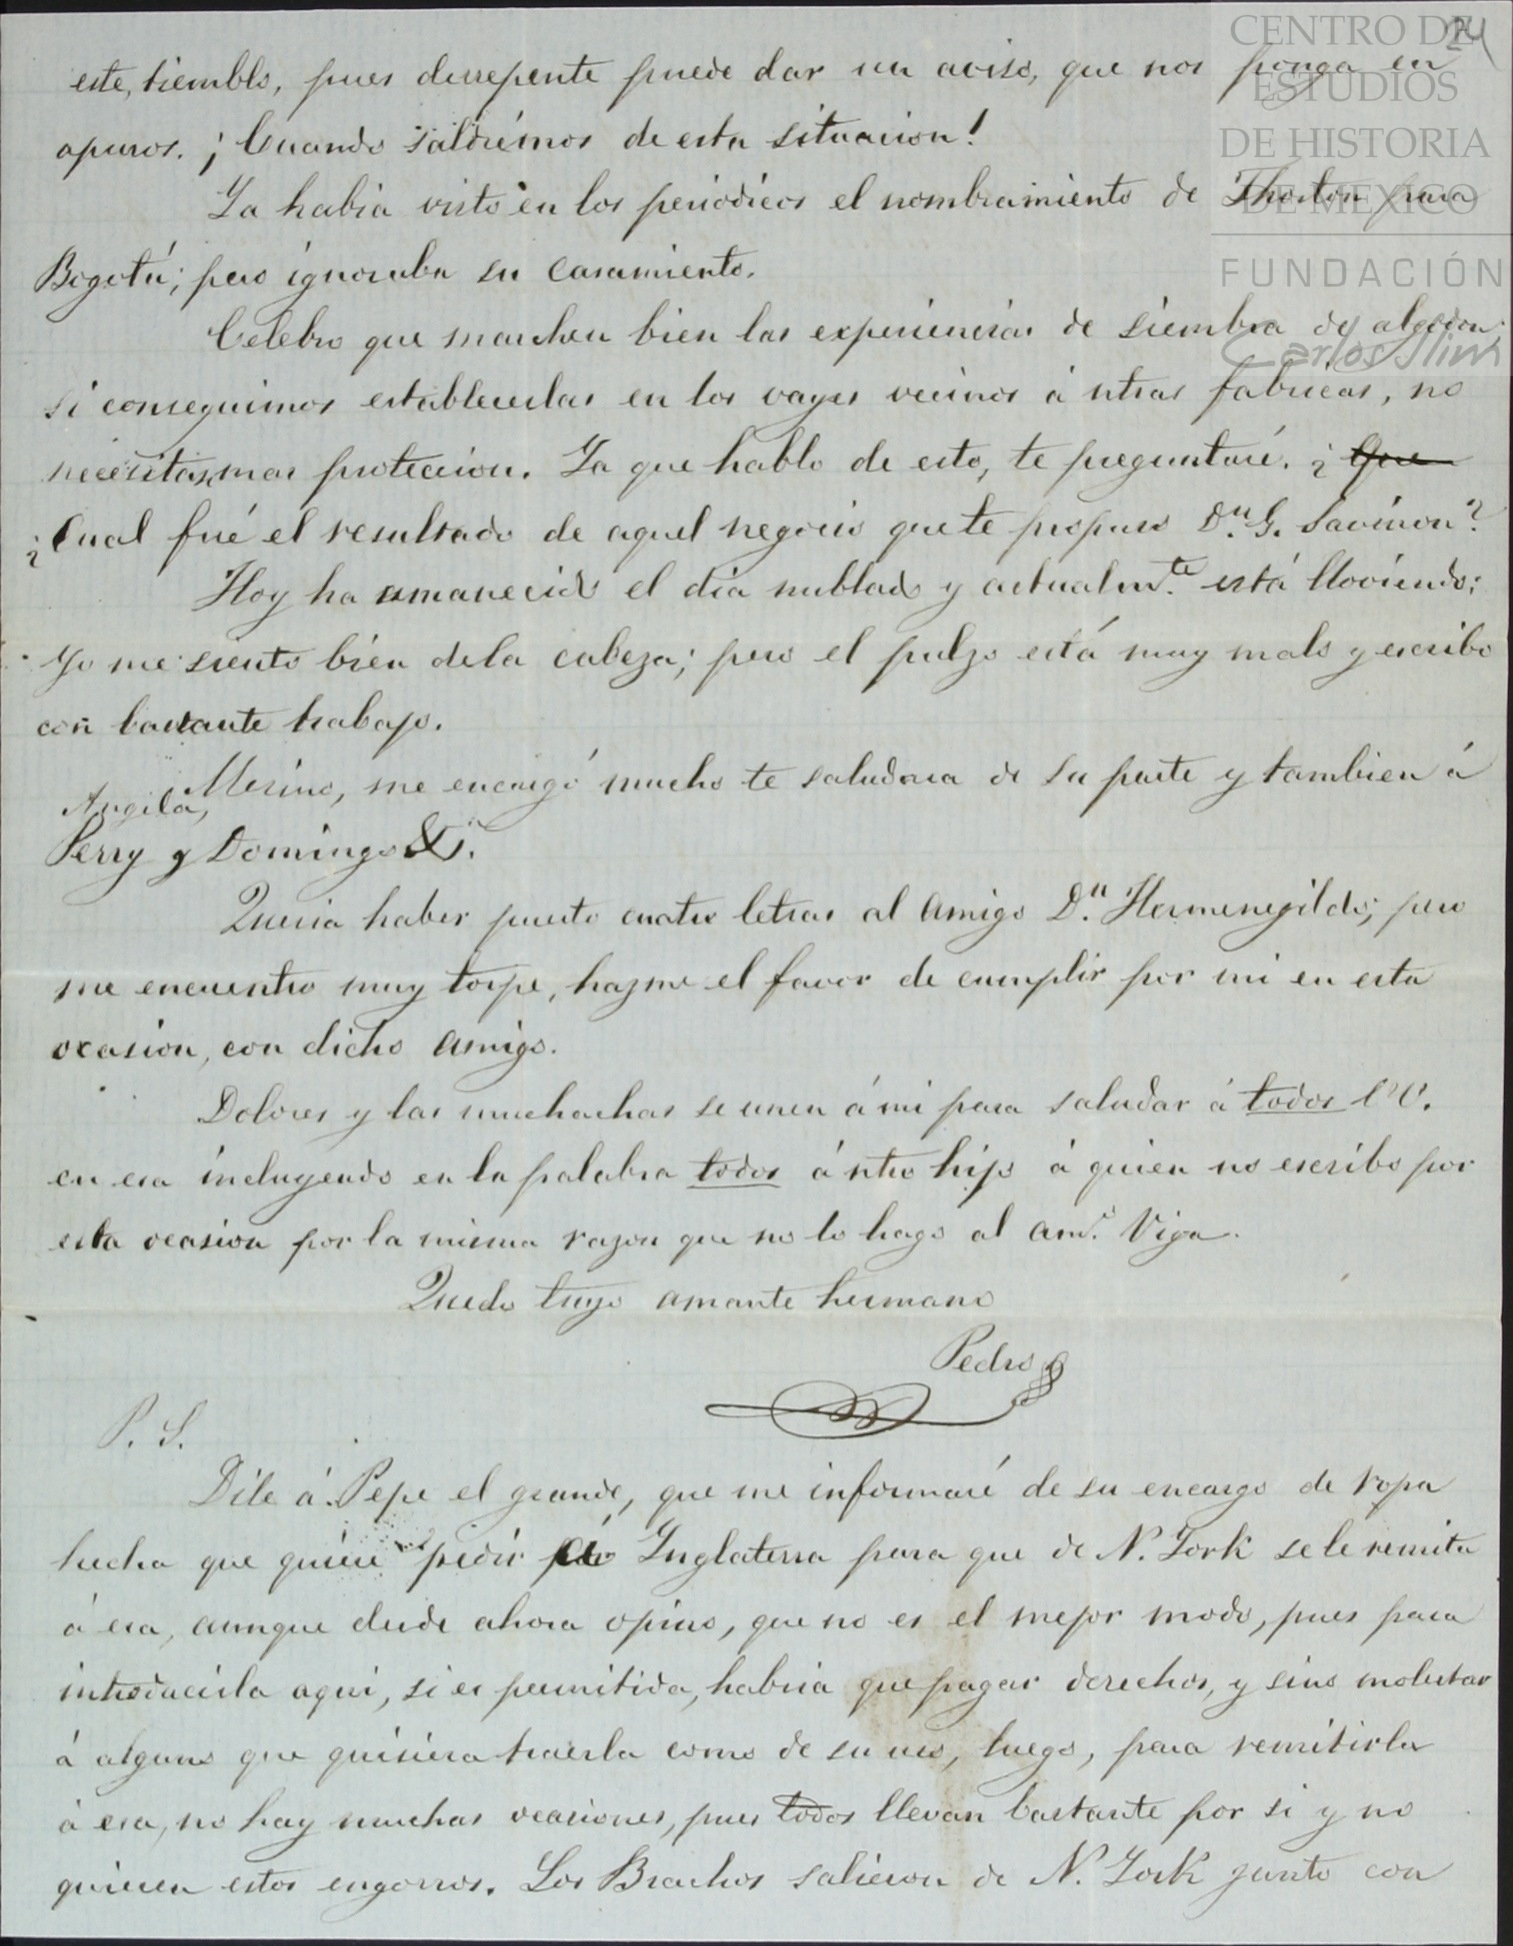 24
CENTRO DE
ESTUDIOS
DE HISTORIA
DE MEXICO
FUNDACIÓN
Carlos Slim
este, tiemblo, pues derrepente puede dar un aviso, que nos ponga en
apuros. ¡Cuando saldrémos de esta situacion!
Ya habia visto en los periodicos el nombramiento de Thorton para
Bogotá; pero ignoraba su casamiento.
Celebro que marchen bien las experiencias de siembra de algodon
si conseguimos establecerlas en los vayes vecinos á ntras fabricas, no
necesitamos mas proteccion. Ya que hablo de esto, te preguntaré. ¿ Que
¿Cual fué el resultado de aquel negocio que te propuso Dn. G. Saviñon?
Hoy ha amanecido el dia nublado y actualmte. está lloviendo;
Yo me siento bien dela cabeza; pero el pulzo está muy malo y escribo
con bastante trabajo.
Merino, me encargó mucho te saludara de su parte y tambien á
Angela,
Perry y Domingo &.
Queria haber puesto cuatro letras al amigo Dn. Hermenegildo; pero
me encuentro muy torpe, hazme el favor de cumplir por mi en esta
ocasion, con dicho amigo.
Dolores y las muchachas se unen á mi para saludar á todos VV.
en esa incluyendo en la palabra todos á ntro hijo á quien no escribo por
esta ocasion por la misma razon que no lo hago al amo. Viga.
Quedo tuyo amante hermano
Pedro
P. S.
Dile á Pepe el grande, que me informaré de su encargo de ropa
hecha que quiere pedir á Inglaterra para que de N. York se le remita
á esa, aunque desde ahora opino, que no es el mejor modo, pues para
introducirla aqui, si es permitida, habria que pagar derechos, y sino molestar
á alguno que quisiera traerla como de su uso, luego, para remitirla
á esa, no hay muchas ocasiones, pues todos llevan bastante por si y no
quieren estos engorros. Los Brachos salieron de N. York junto con